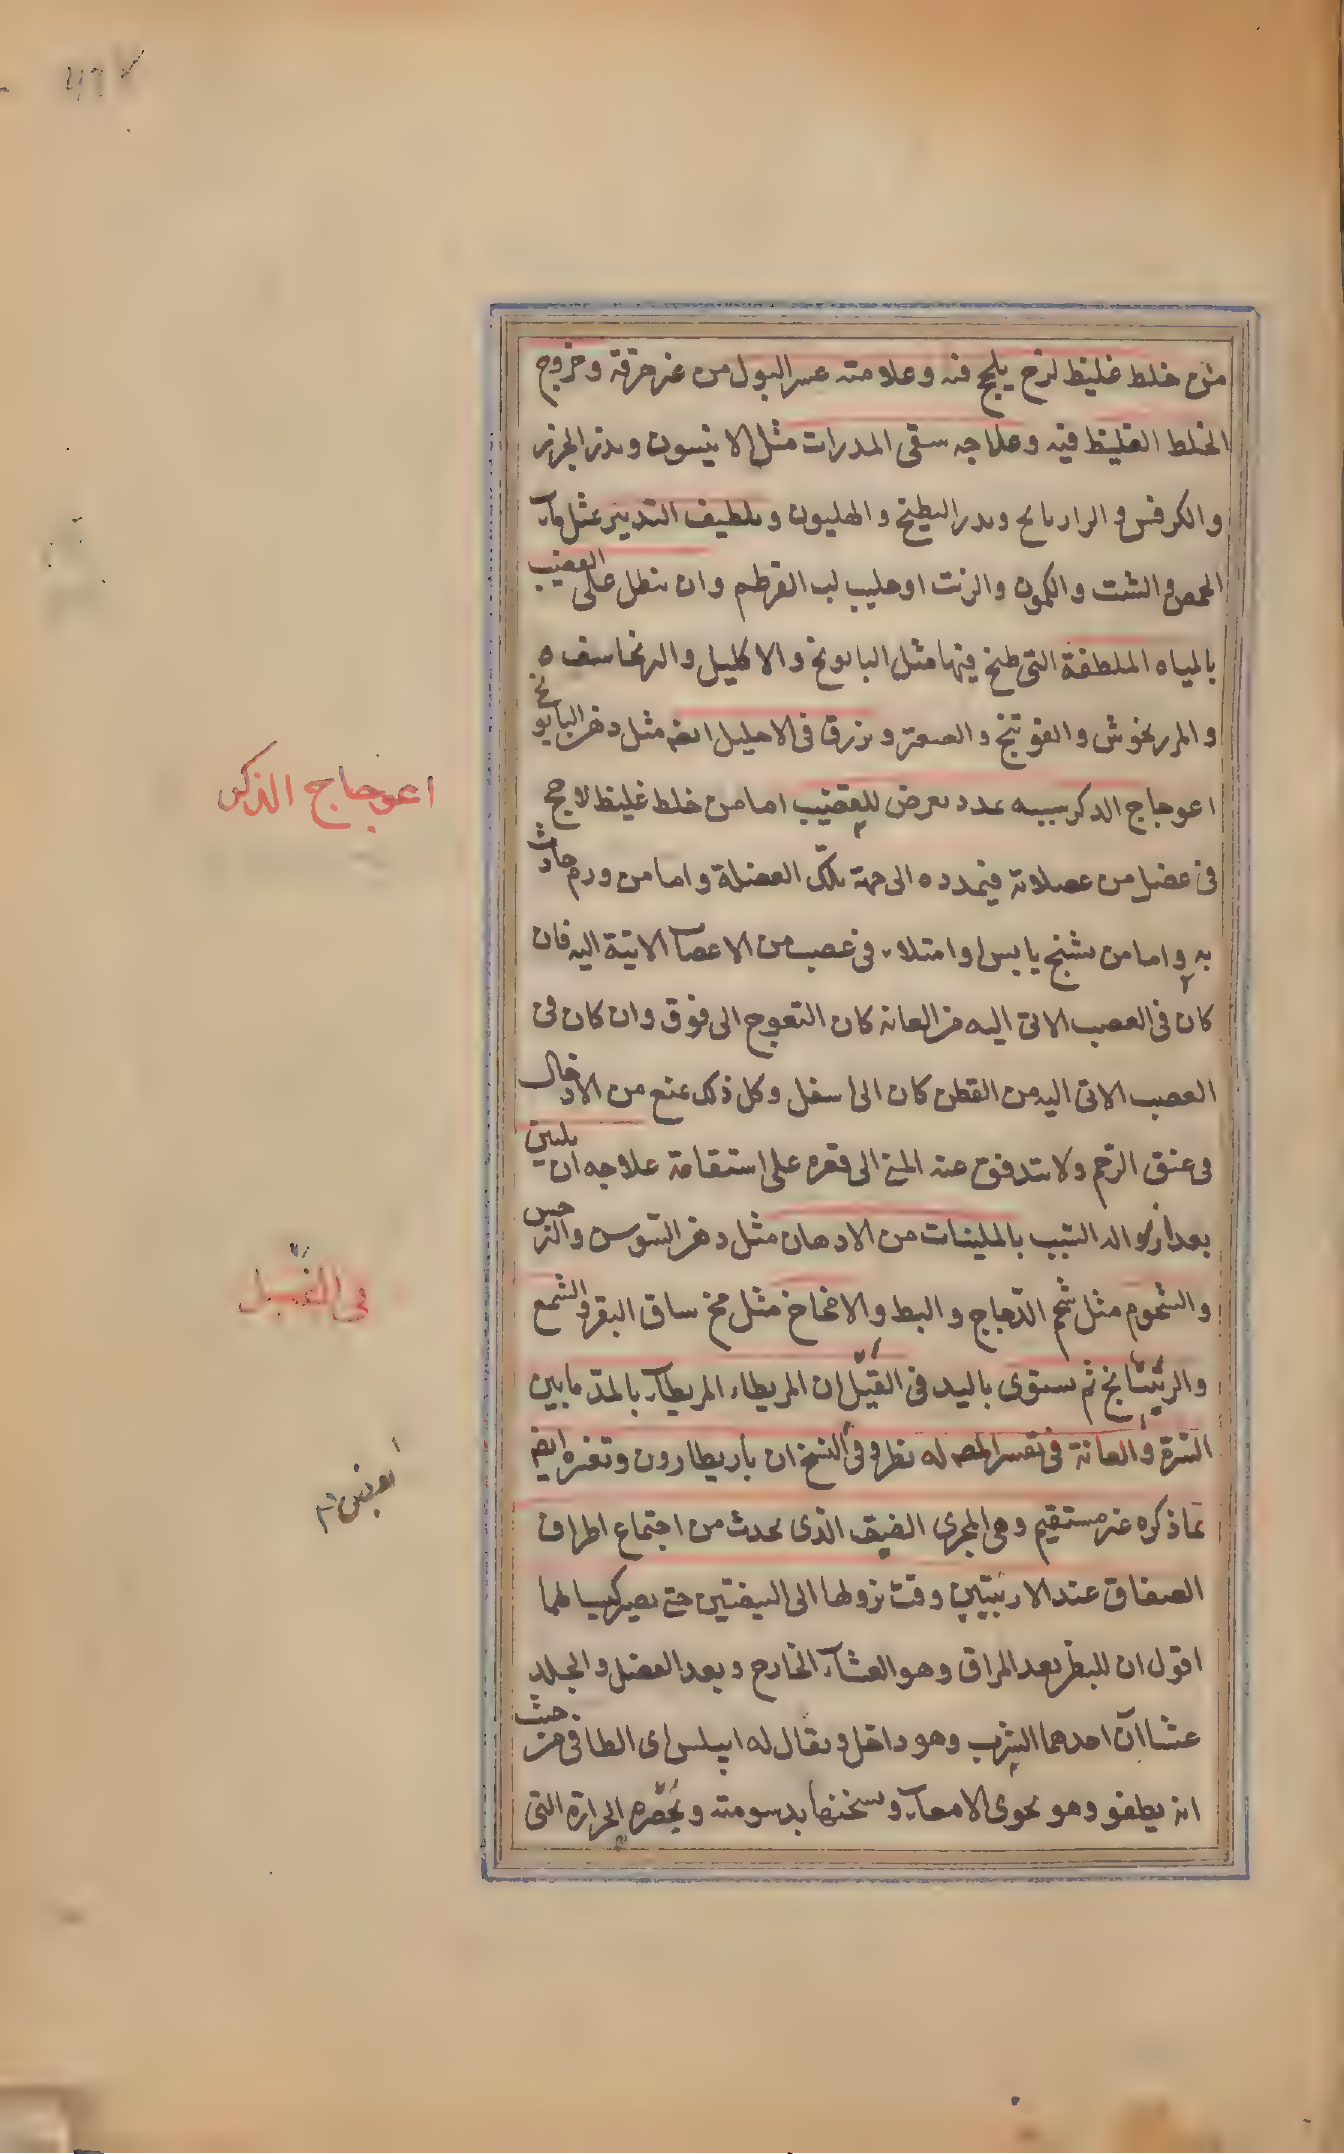 ٤٦٧
من خلط غليظ لزج يلحج فيه وعلامته عسر البول من غير حرقة وخروج
الخلط الغليظ فيه وعلاجه سقى المدرات مثل الانيسون وبذر الجزر
والكرفس والرازيانج وبذر البطيخ والهليون وتلطيف التدبير بمثل مآء
الحمص والشبت والكمون والزيت او حليب لب القرطم وان ينطل على القضيب
بالمياه الملطفة التى طبخ فيها مثل البابونج والاكليل والبرنجاسف ٥
والمرزنجوش والفوتنج والصعتر ويزرق فى الاحليل ايضا مثل دهن البابونج
اعوجاج الذكر
اعوجاج الذكر سببه تمدد يعرض للقضيب اما من خلط غليظ لاحج
فى عضل من عضلاته فيمدده الى جهة تلك العضلة واما من ورم حادث
به واما من تشنج يابس او امتلاء فى عصب من الاعصاب الاتية اليه فان
كان فى العصب الاتى اليه من العانة كان التعوج الى فوق وان كان فى
العصب الاتى اليه من القطن كان الى اسفل وكل ذلك يمنع من الادخال
فى عنق الرحم ولا يتدفق عنه المنى الى قعره على استقامة علاجه ان يلين
بعد ازالة السبب بالملينات من الادهان مثل دهن السوسن والنرجس
والشحوم مثل شحم الدجاج والبط والامخاخ مثل مخ ساق البقر والشمع
فى القيل
والريتيانج ثم يسوى باليد فى القيل ان المريطاء المريطآء بالمد ما بين
السرة والعانة فى تفسير المص له نظر وفى النسخ ان باريطارون وتفسره ايض
بما ذكره غير مستقيم وهى المجرى الضيق الذى يحدث من اجتماع اطراف
الصفاق عند الاربيتين وقت نزولها الى البيضتين حتى يصير كيسا لهما
اقول ان للبطن بعد المراق وهو الغشآء الخارج وبعد العضل والجلد
غشاآن احدهما الثرب وهو داخل ويقال له ايپلس اى الطافى من حيث
انه يطفو وهو يحوى الامعآء ويسخنها بدسومته و الحرارة التى